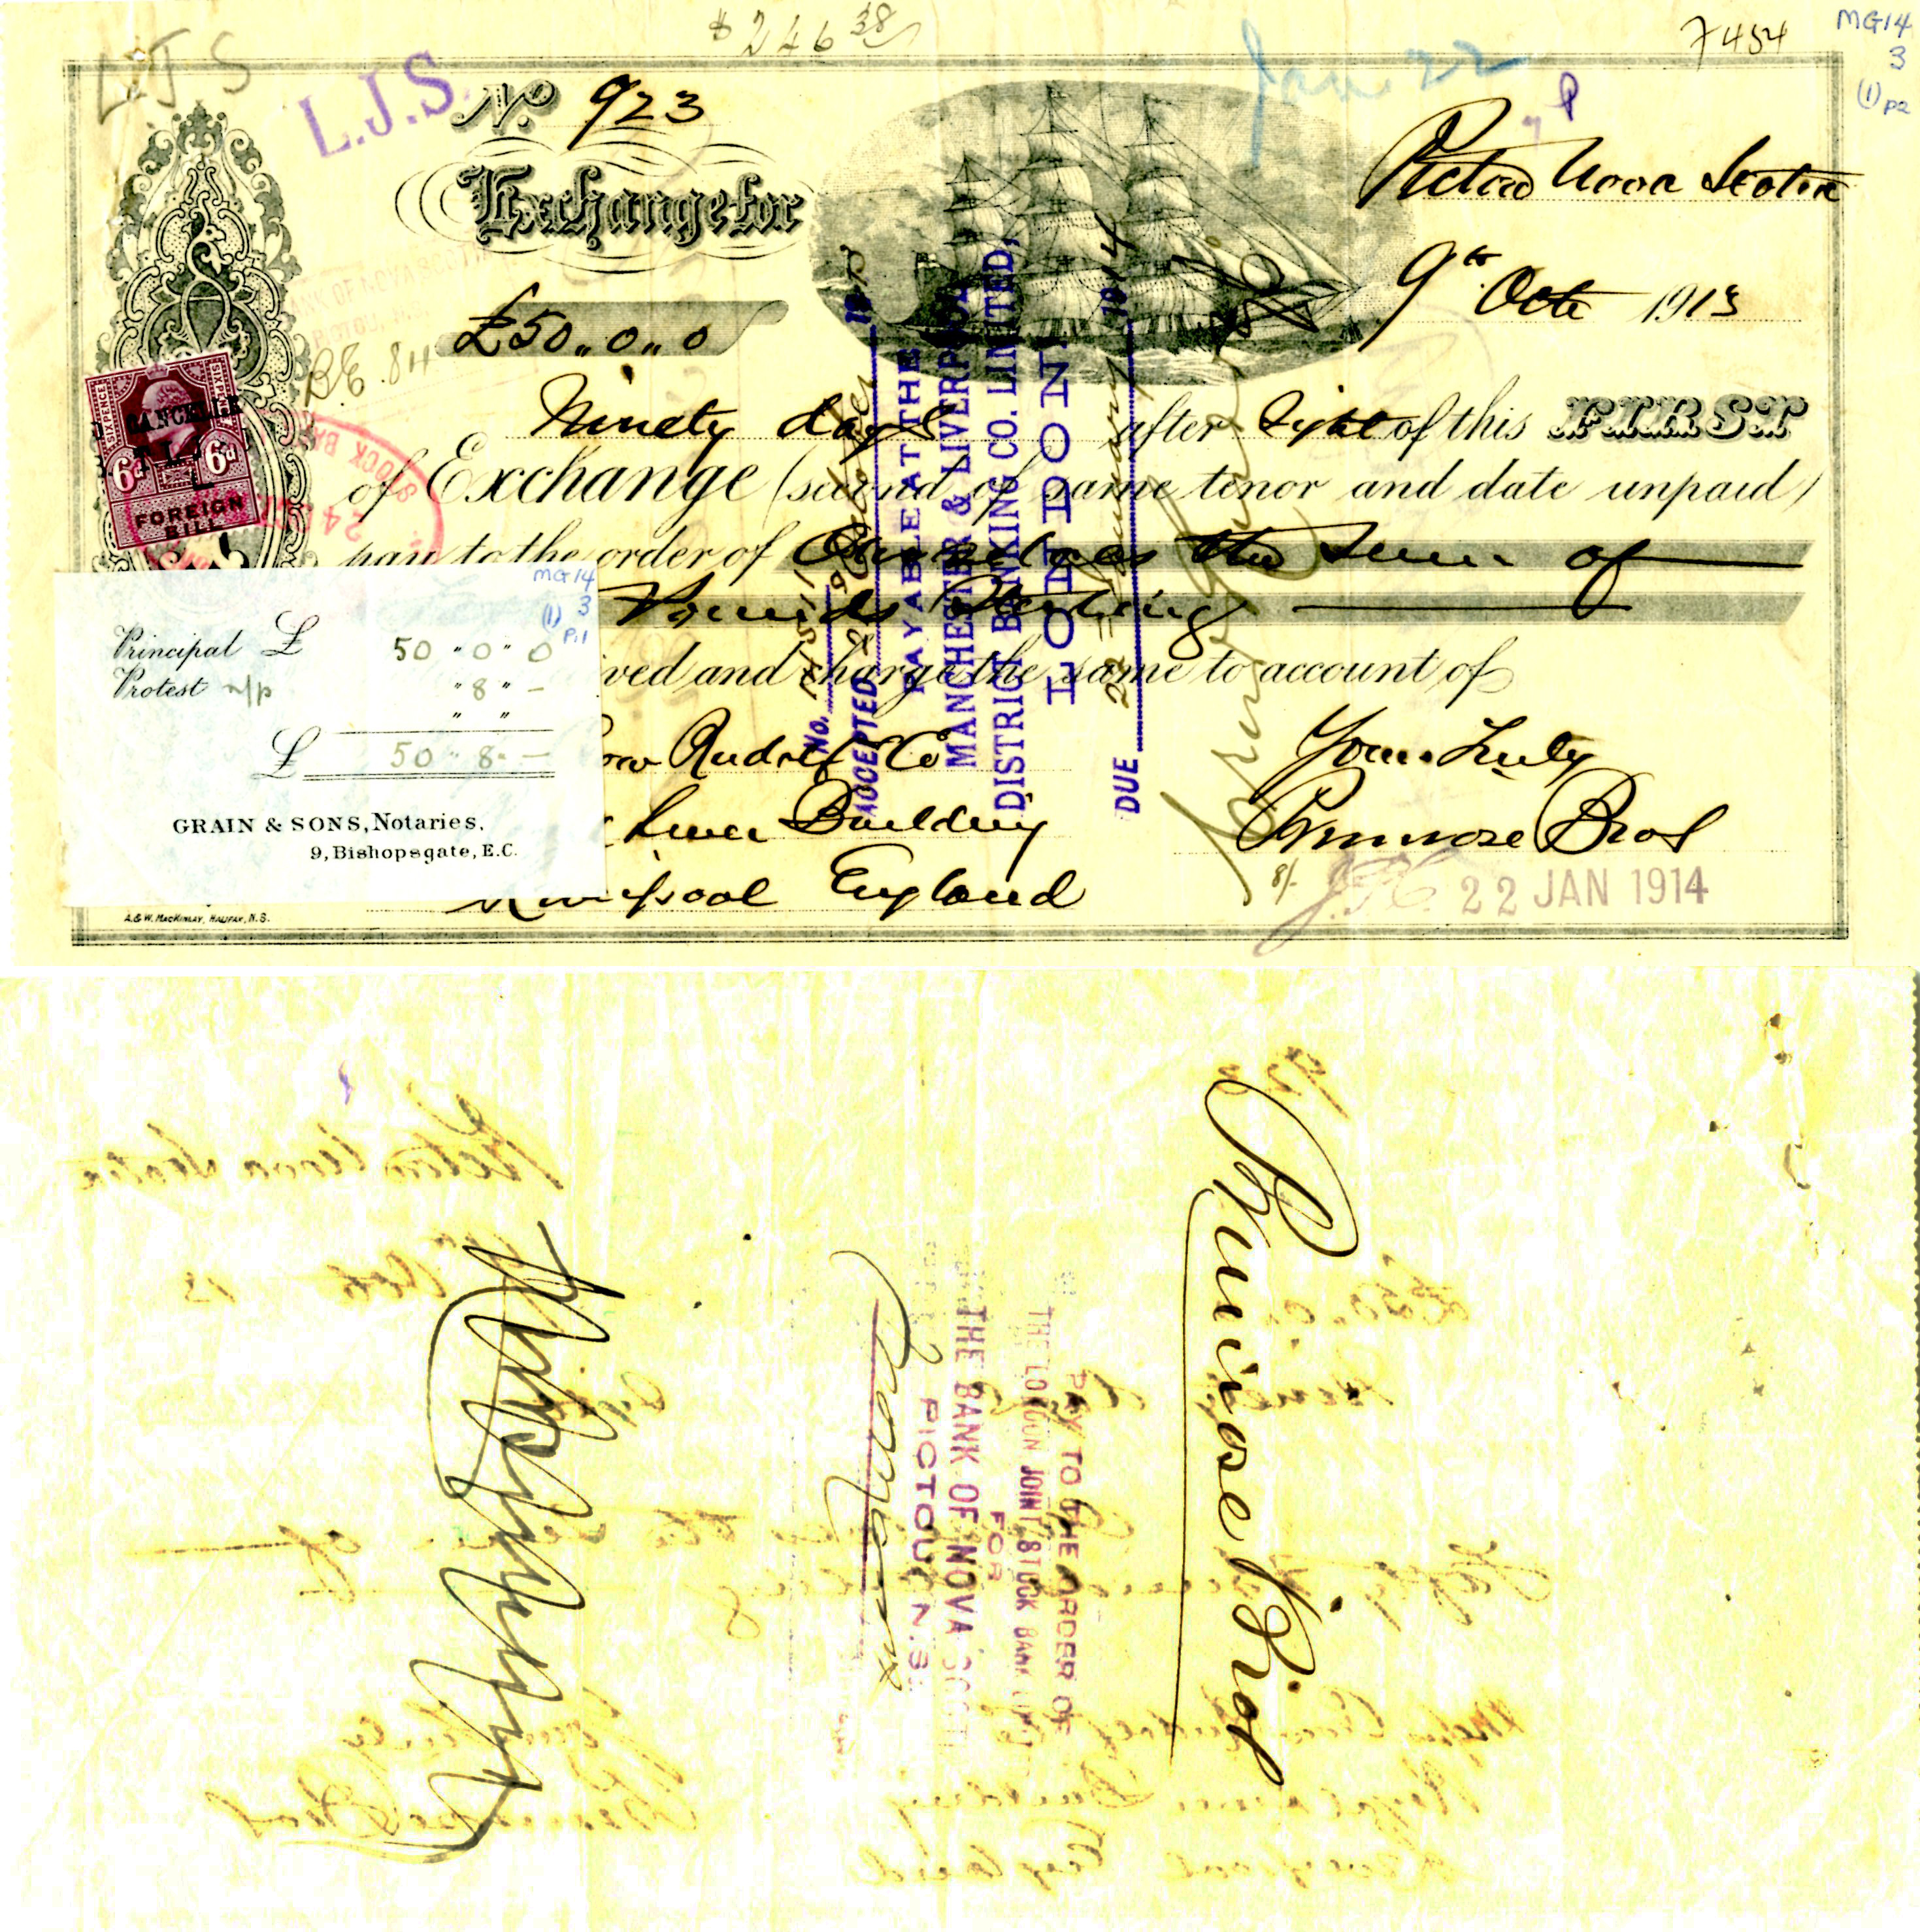 $246 38
7454
MG14
3
(1) p2
LJS
L.J.S.
Jan 22
No. 923
Exchange for
Pictou Nova Scotia
9th Octr 1913
£50,,0,,0
B.E. 84
SIXPENCE
SIXPENCE
CANCELLE
6d
6d
FOREIGN
BILL
24
Ninety days after sight of this FIRST
of Exchange (second of same tenor and date unpaid)
pay to the order of Ourselves the Sum of
Pounds Sterling
ved and charge the same to account of
Rudolf & Co
Yours Truly
Liver Building
Primrose Bros
Liverpool England
8/-
22 JAN 1914
A. & W. MACKINLAY, HALIFAX, N.S.
No.
ACCEPTED
PAYABLE AT THE
MANCHESTER & LIVERPOOL
DISTRICT BANKING CO. LIMITED,
LONDON
DUE 22 January 1914
MG14
3
(1)
P.1
Principal £ 50 " 0 " 0
Protest n/p " 8 " -
" "
£ 50 " 8 " -
GRAIN & SONS, Notaries,
9, Bishopsgate, E.C.
Primrose Bros
PAY TO THE ORDER OF
THE LONDON JOINT STOCK BANK
FOR
THE BANK OF NOVA SCOTI
PICTOU, N.S.